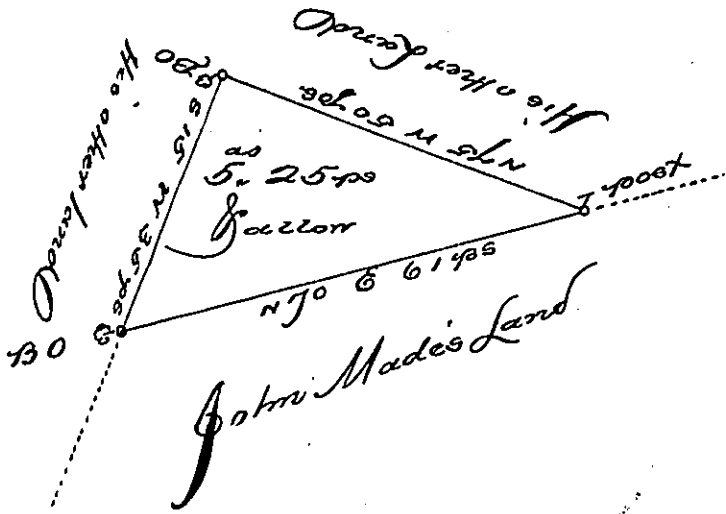 His other Land
His other land
BO
N 75 W 50 ps
S 15 W 35 ps
as
5,, 25 ps
post
N 70 E 61 ps
BO
John Made's Land